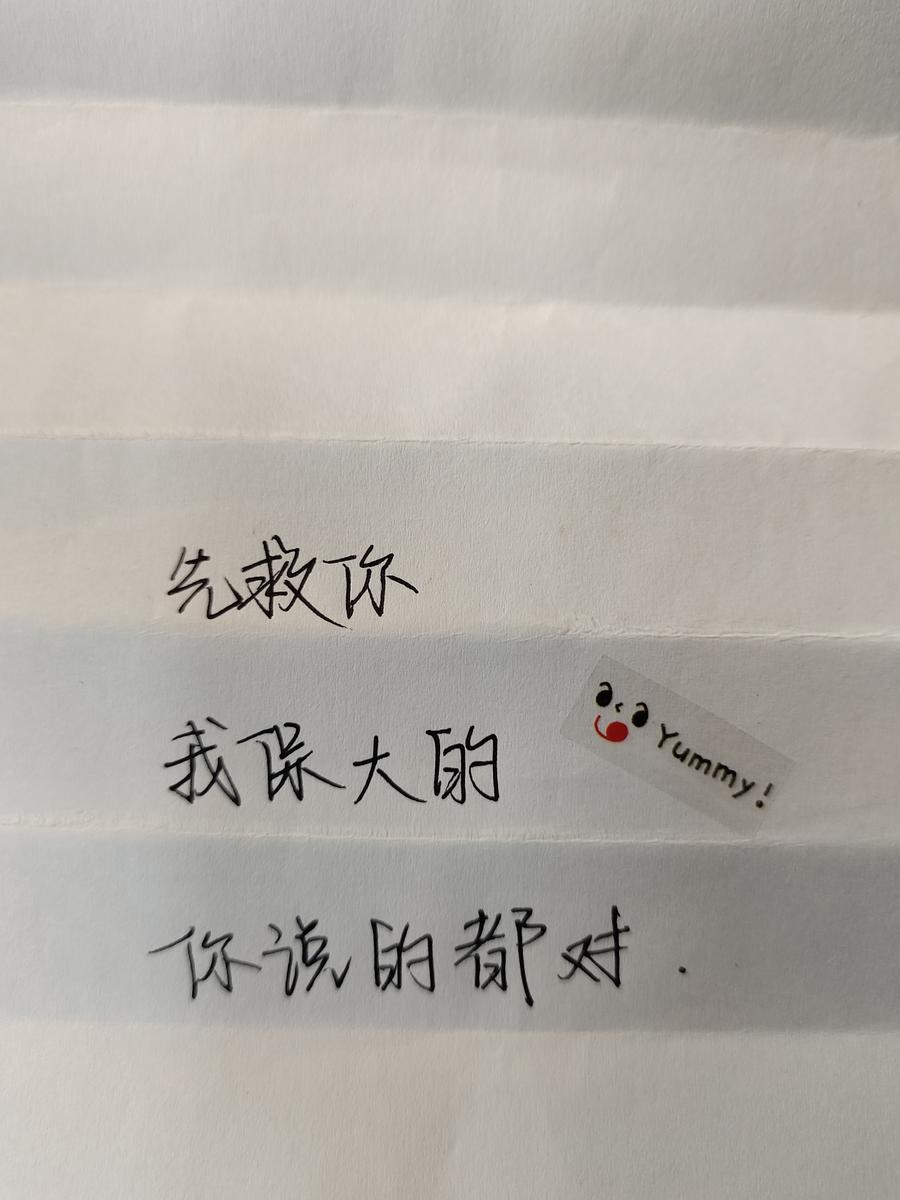 先救你
我保大的
Yummy!
你说的都对.